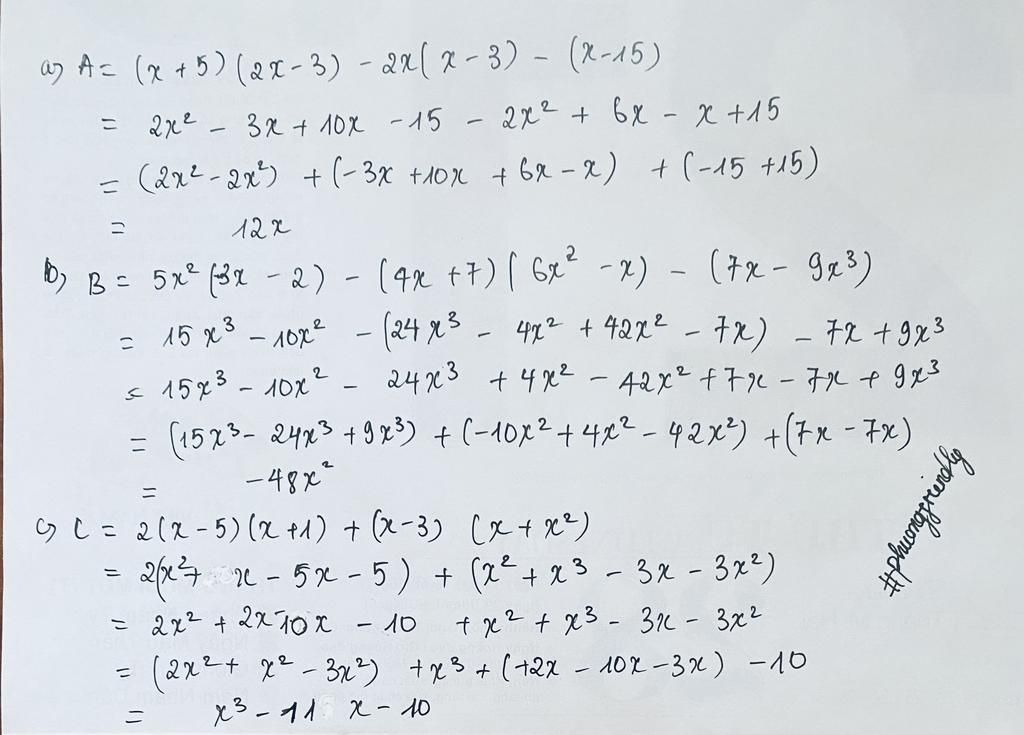 a) A = (x + 5) (2x - 3) - 2x( x - 3) - (x-15)
= 2x² - 3x + 10x - 15 - 2x² + 6x - x + 15
= (2x² - 2x²) + (-3x + 10x + 6x - x) + (-15 + 15)
= 12x
b) B = 5x² (3x - 2) - (4x + 7) ( 6x² - x) - (7x - 9x³)
= 15x³ - 10x² - (24x³ - 4x² + 42x² - 7x) - 7x + 9x³
= 15x³ - 10x² - 24x³ + 4x² - 42x² + 7x - 7x + 9x³
= (15x³ - 24x³ + 9x³) + (-10x² + 4x² - 42x²) + (7x - 7x)
= -48x²
c) C = 2(x - 5) (x + 1) + (x - 3) (x + x²)
= 2(x² + x - 5x - 5) + (x² + x³ - 3x - 3x²)
= 2x² + 2x - 10x - 10 + x² + x³ - 3x - 3x²
= (2x² + x² - 3x²) + x³ + (+2x - 10x - 3x) - 10
= x³ - 11 x - 10